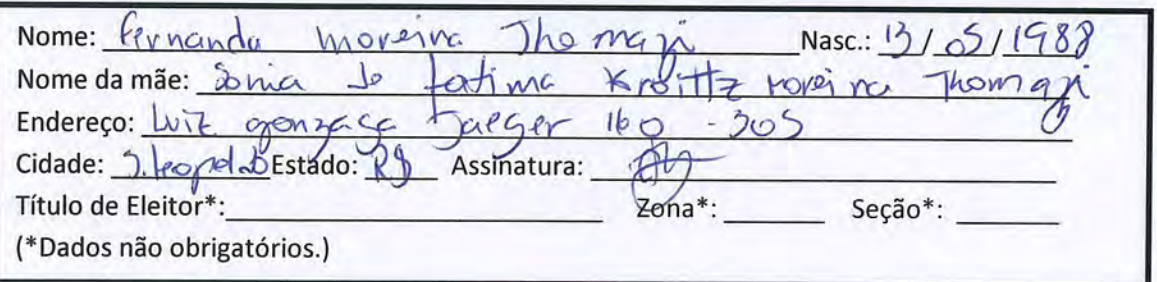 Nome: Fernanda Moreira Thomazi Nasc.: 13/05/1988
Nome da mãe: Sonia de Fatima Moreira Thomazi
Endereço: Luiz gonzaga Jaeger 160 - 305
Cidade: S. Leopoldo Estado: RS Assinatura:
Título de Eleitor*: Zona*: Seção*:
(*Dados não obrigatórios.)